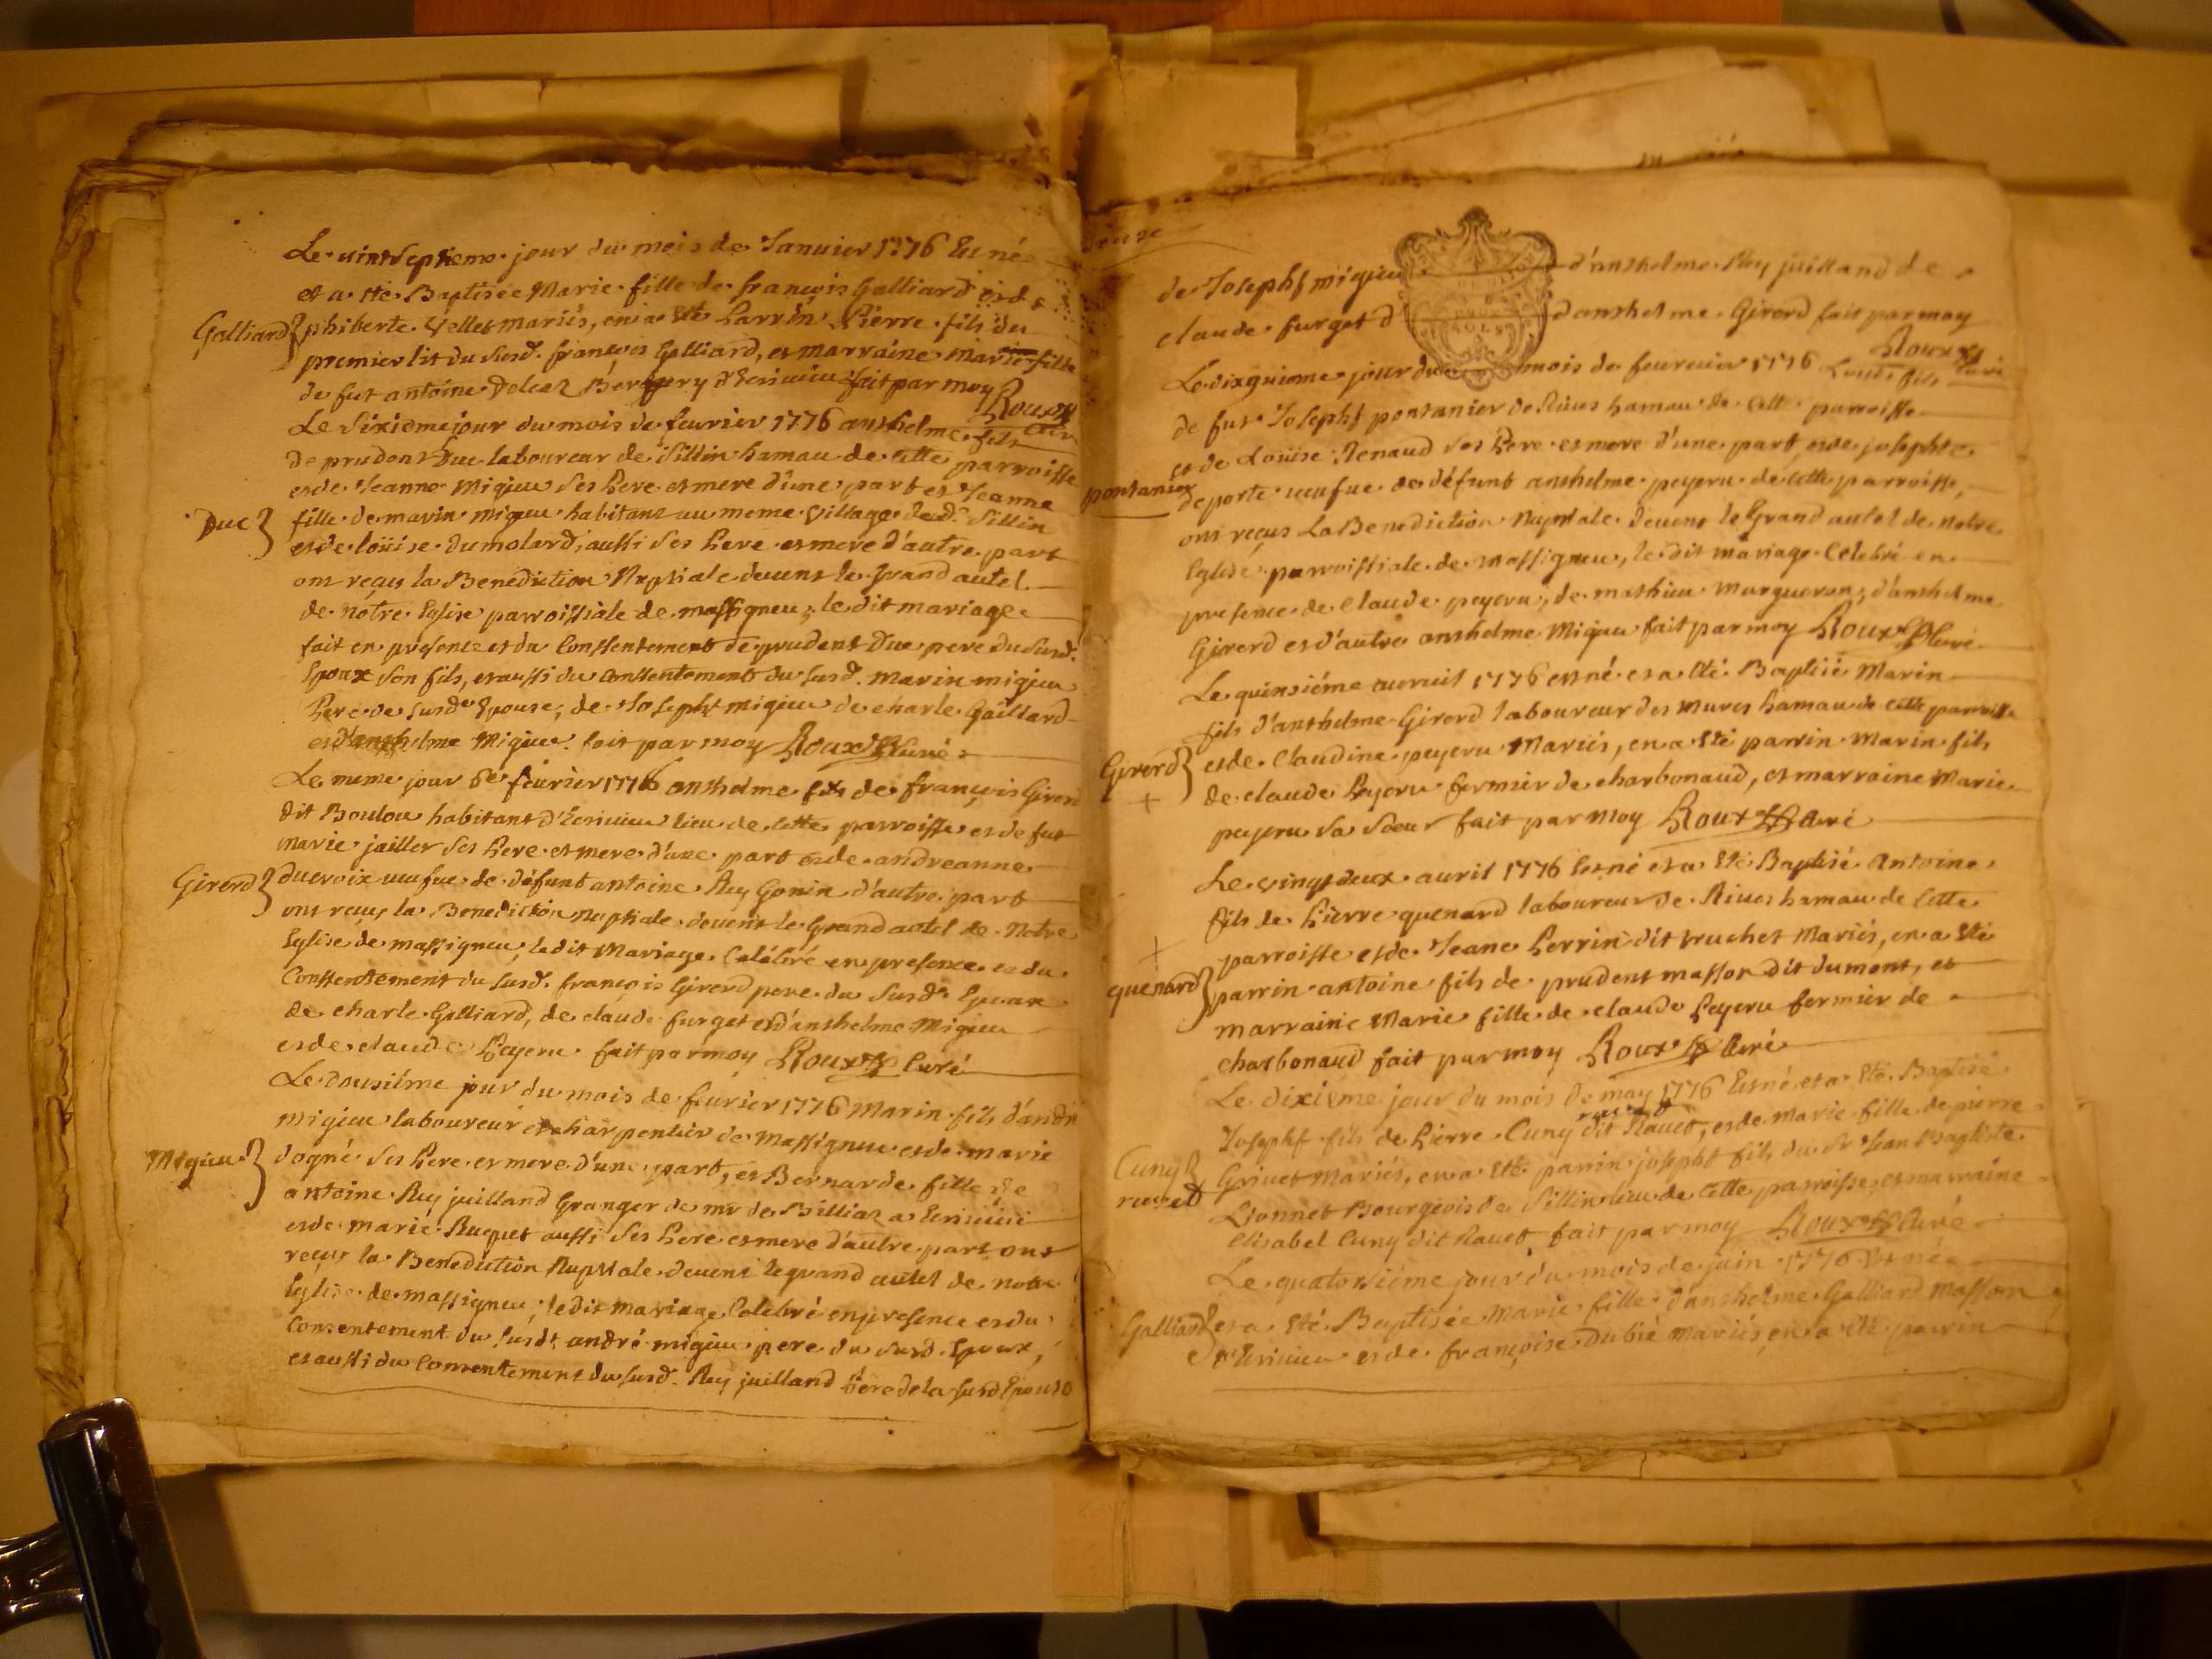 Le vintseptieme jour du mois de Janvier 1776 Est né
et a été Baptisée Marie fille de françois Galliard et de
Galliard
philberte vellet mariés, en a été Parrin Pierre fils du
premier lit du susd. françois Galliard, et marraine Marie fille
de fut antoine Delcaz Bergery d'Ecrivieu fait par moy
Roux Curé
Le Sixieme jour du mois de fevrier 1776 anthelme fils
de prudent Duc laboureur de Sillin hamau de cette parroisse
et de Jeanne Migieu ses Pere et mere d'une part et Jeanne
Duc
fille de marin migieu habitant au meme village de Sillin
et de loüise Dumolard, aussi ses Pere et mere d'autre part
ont reçus la Benediction Nuptiale devent le grand autel
de nôtre Eglise parroissiale de massigneu; le dit mariage
fait en presence et du Conssentement de prudent Duc pere du susd.
Epoux son fils, et aussi du conssentement du susd. marin migieu
Pere de susde Epouse, de Joseph migieu de charle Galliard
et d'anthelme Migieu. fait par moy Roux Curé
Le meme jour 6e fevrier 1776 anthelme fils de françois Girerd
dit Boudou habitant d'Ecrivieu lieu de cette parroisse et de fut
marie jailler ses Pere et mere d'une part et de andreanne
Girerd
ducroix veufve de défunt antoine Rey Gonin d'autre part
ont reçus la Benediction nuptiale devent le Grand autel de Notre
Eglise de massigneu, le dit Mariage Celébré en presence et du
Conssentement du susd. françois Girerd pere du susd. Epoux
de charle Galliard, de claude furget et d'anthelme Migieu
et de claude Peyeru fait par moy Roux Curé
Le dousiéme jour du mois de fevrier 1776 Marin fils d'andré
migieu laboureur et charpentier de Massigneu et de marie
Migieu
dogné ses Pere et mere d'une part, et Bernarde fille de
antoine Rey juilland Granger de mr de Billiaz a Ecrivieu
et de marie Ruquet aussi ses Pere et mere d'autre part ont
reçus la Benediction Nuptiale devent le grand autel de notre
Eglise de massigneu; le dit mariage Celebré en presence et du
Consentement du susdt andré migieu pere du susd. Epoux,
et aussi du Consentement du susd. Rey juilland Pere de la susd Epouse
de Joseph migieu d'anthelme Rey juilland de
claude furget d anthelme Girerd fait par moy
Roux Curé
Le dixquieme jour du mois de fevrier 1776 Louis fils
de fut Joseph pontanier de Rives hamau de cette parroisse
et de Loüise Renaud ses Pere et mere d'une part, et de josephte
pontanier
deporte veufve de défunt anthelme peyeru de cette parroisse,
ont reçus La Benediction Nuptiale devent le Grand autel de notre
Eglise parroissiale de Massigneu, le dit mariage Celebré en
presence de Claude peyeru, de mathieu Margueron, d'anthelme
Girerd et d'autre anthelme Migieu fait par moy Roux Curé
Le quinsiéme avril 1776 est né et a été Baptisé Marin
fils d'anthelme Girerd laboureur des Mures hamau de cette parroisse
Girerd
et de Claudine peyeru Mariés, en a été parrin Marin fils
de claude Peyeru fermier de charbonaud, et marraine Marie
peyeru sa soeur fait par moy Roux Curé
Le vingtdeux avril 1776 Est né et a été Baptisé Antoine
fils de Pierre quenard laboureur de Rives hamau de cette
parroisse et de Jeane Perrin dit truchet Mariés, en a été
quenard
parrin antoine fils de prudent masson dit dumont, et
marraine Marie fille de claude Peyeru fermier de
charbonaud fait par moy Roux Curé
Le dixiéme jour du mois de may 1776 Est né et a été Baptisé
Joseph fils de Pierre Cuny dit Ravet, et de Marie fille de pierre
Cuny
revet
Grivet Mariés, en a été parrin joseph fils du Sr Jean Baptiste
Lionnet Bourgeois de Sillin lieu de cette parroisse, et marraine
Elisabel Cuny dit Ravet fait par moy Roux Curé
Le quatorsiéme jour du mois de juin 1776 Est née
Galliard
et a été Baptisée Marie fille d'anthelme Galliard Masson
d'Ecrivieu et de françoise Dubié Mariés, en a été parrin